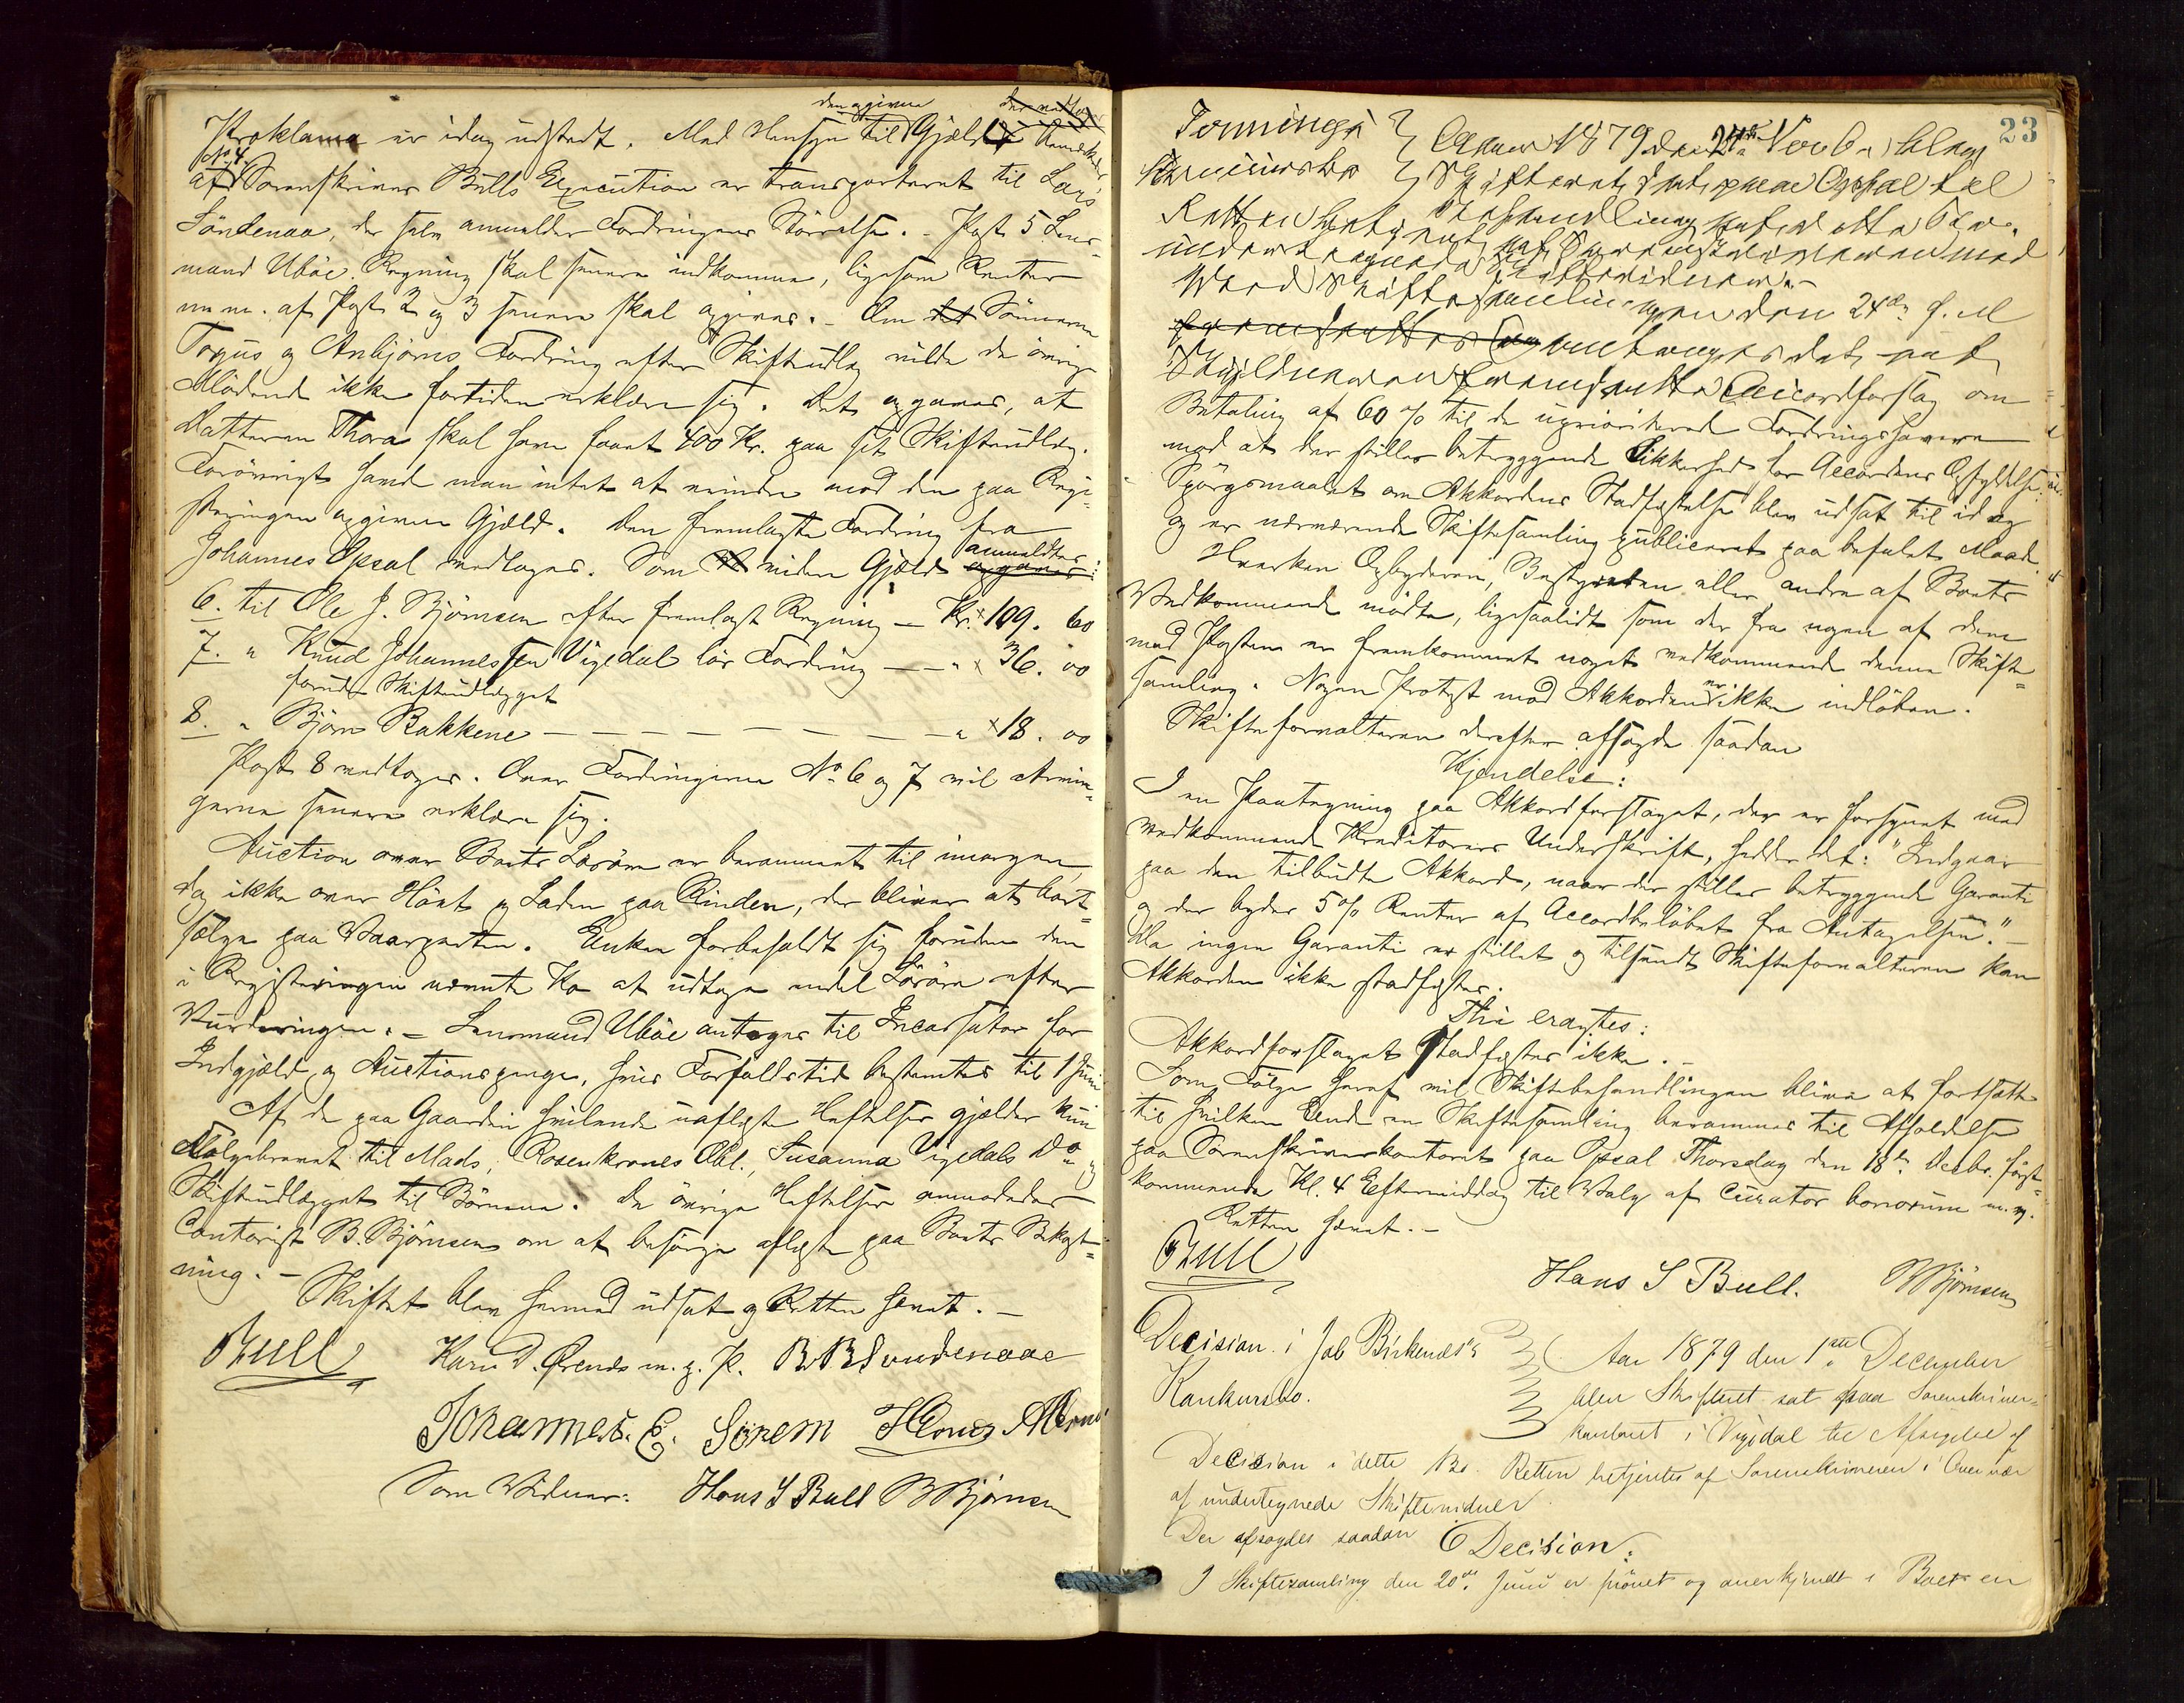 den opgivne
Proklama er idag udstedt. Med Hensyn til Gjæld
No 4.
af Sorenskriver Bulls Execution er transporteret til Lars
Söndenaa, der selv anmelder Fordringens Störrelse. - Post 5 Lens-
mand Ubøe Regning skal senere indkomme, ligesom Renter
m. m. af Post 2 og 3 senere skal opgives. - Om det Sönnerne
og Anbjörns Fordring efter Skifteudlæg vilde de övrige
Mödende ikke fortiden erklære sig. Det opgaves, at
Datteren Thora skal have faaet 400 Kr. paa sit Skifteudlæg.
Forövrigt havde man intet at erindre mod den paa Regi-
streringen opgivne Gjæld. Den fremlagte Fordring fra
Johannes Opsal vedtoges. Som videre Gjæld anmeldtes opgaves:
6. til Ole J. Björnsen efter fremlagt Regning — Kr. 109. 60
7. " Knud Johannessen Vigedal lös Fordring — — " 36. 00
foruden Skifteudlægget
8. " Björn Bakkene — — — — — — — — " 18. 00
Post 8 vedtoges. Over Fordringerne No 6 og 7 vil Arvin-
gerne senere erklære sig.
Auction over Boets Lösöre er berammet til imorgen,
dog ikke over Höet og Laden paa Rinden, der bliver at bort-
sælge paa Vaarparten. Enken forbeholdt sig foruden den
i Registreringen nævnte Ko at udtage endel Lösöre efter
Vurderingen. - Lensmand Ubøe antoges til Incassator for
Indgjæld og Auctionspenge, hvis Forfaldstid bestemtes til 1 Juni
Af de paa Gaarden hvilende uaflyste Heftelser gjælder kun
Fölgebrevet til Mads, Rosenkrones Obl., Susanna Vigedals Do og
Skifteudlægget til Börnene. De övrige Heftelser anmodedes
Contorist B. Björnsen om at besörge aflyst paa Boets Bekost-
ning. -
Skiftet blev hermed udsat og Retten hævet. -
Bull Kari D. m. p. P. B B Sondenaae
Johannes. E. Sörem
Som Vidner: Hans S Bull B Björnsen
23
Tonnings
Anno 1879 den 24de Novbr blev
Skifteret sat paa Opsal til
Behandling af dette Bo.
Retten betjent af Sorenskriveren med
undertegnede Skiftevidner. -
Ved Skiftesamlingen den 24de f. M
fremsattes antoges det af
Skyldneren fremsatte Accordforslag om
Betaling af 60 % til de uprioriterede Fordringshavere
mod at der stilles betryggende Sikkerhed for Accordens Opfyldelse.
Spörgsmaalet om Akkordens Stadfæstelse blev udsat til idag
og er nærværende Skiftesamling publiceret paa befalet Maade.
Hverken Opbyderen, Bestyreren eller andre af Boets
Vedkommende mödte, ligesaalidt som der fra nogen af dem
med Posten er fremkommet noget vedkommende denne Skifte-
samling. Nogen Protest mod Akkorden er ikke indlöben.
Skifteforvalteren derefter afsagde saadan
Kjendelse:
I en Paategning paa Akkordforslaget, der er forsynet med
vedkommende Kreditorers Underskrift, hedder det: "Indgaar
paa den tilbudte Akkord, naar der stilles betryggende Garanti
og der bydes 5 % Renter af Accordbelöbet fra Antagelsen." -
Da ingen Garanti er stillet og tilsendt Skifteforvalteren kan
Akkorden ikke stadfæstes.
Thi eragtes:
Akkordforslaget stadfæstes ikke. -
Som Fölge heraf vil Skiftebehandlingen blive at fortsætte
til hvilken Ende en Skiftesamling berammes til Afholdelse
paa Sorenskriverkontoret paa Opsal Thorsdag den 18de Decbr. först-
kommende Kl. 4 Eftermiddag til Valg af Curator bonorum m. m.
Retten hævet. -
Bull
Hans S Bull. B Björnsen
Decision i Job Birkenes's
Konkursbo.
Aar 1879 den 1ste December
blev Skifteret sat paa Sorenskriver-
kontoret i Vigedal til Afsigelse af
Decision i dette Bo. Retten betjentes af Sorenskriveren i Overvær
af undertegnede Skiftevidner
Der afsagdes saadan Decision:
I Skiftesamling den 20de Juni er prövet og anerkjendt i Boet en